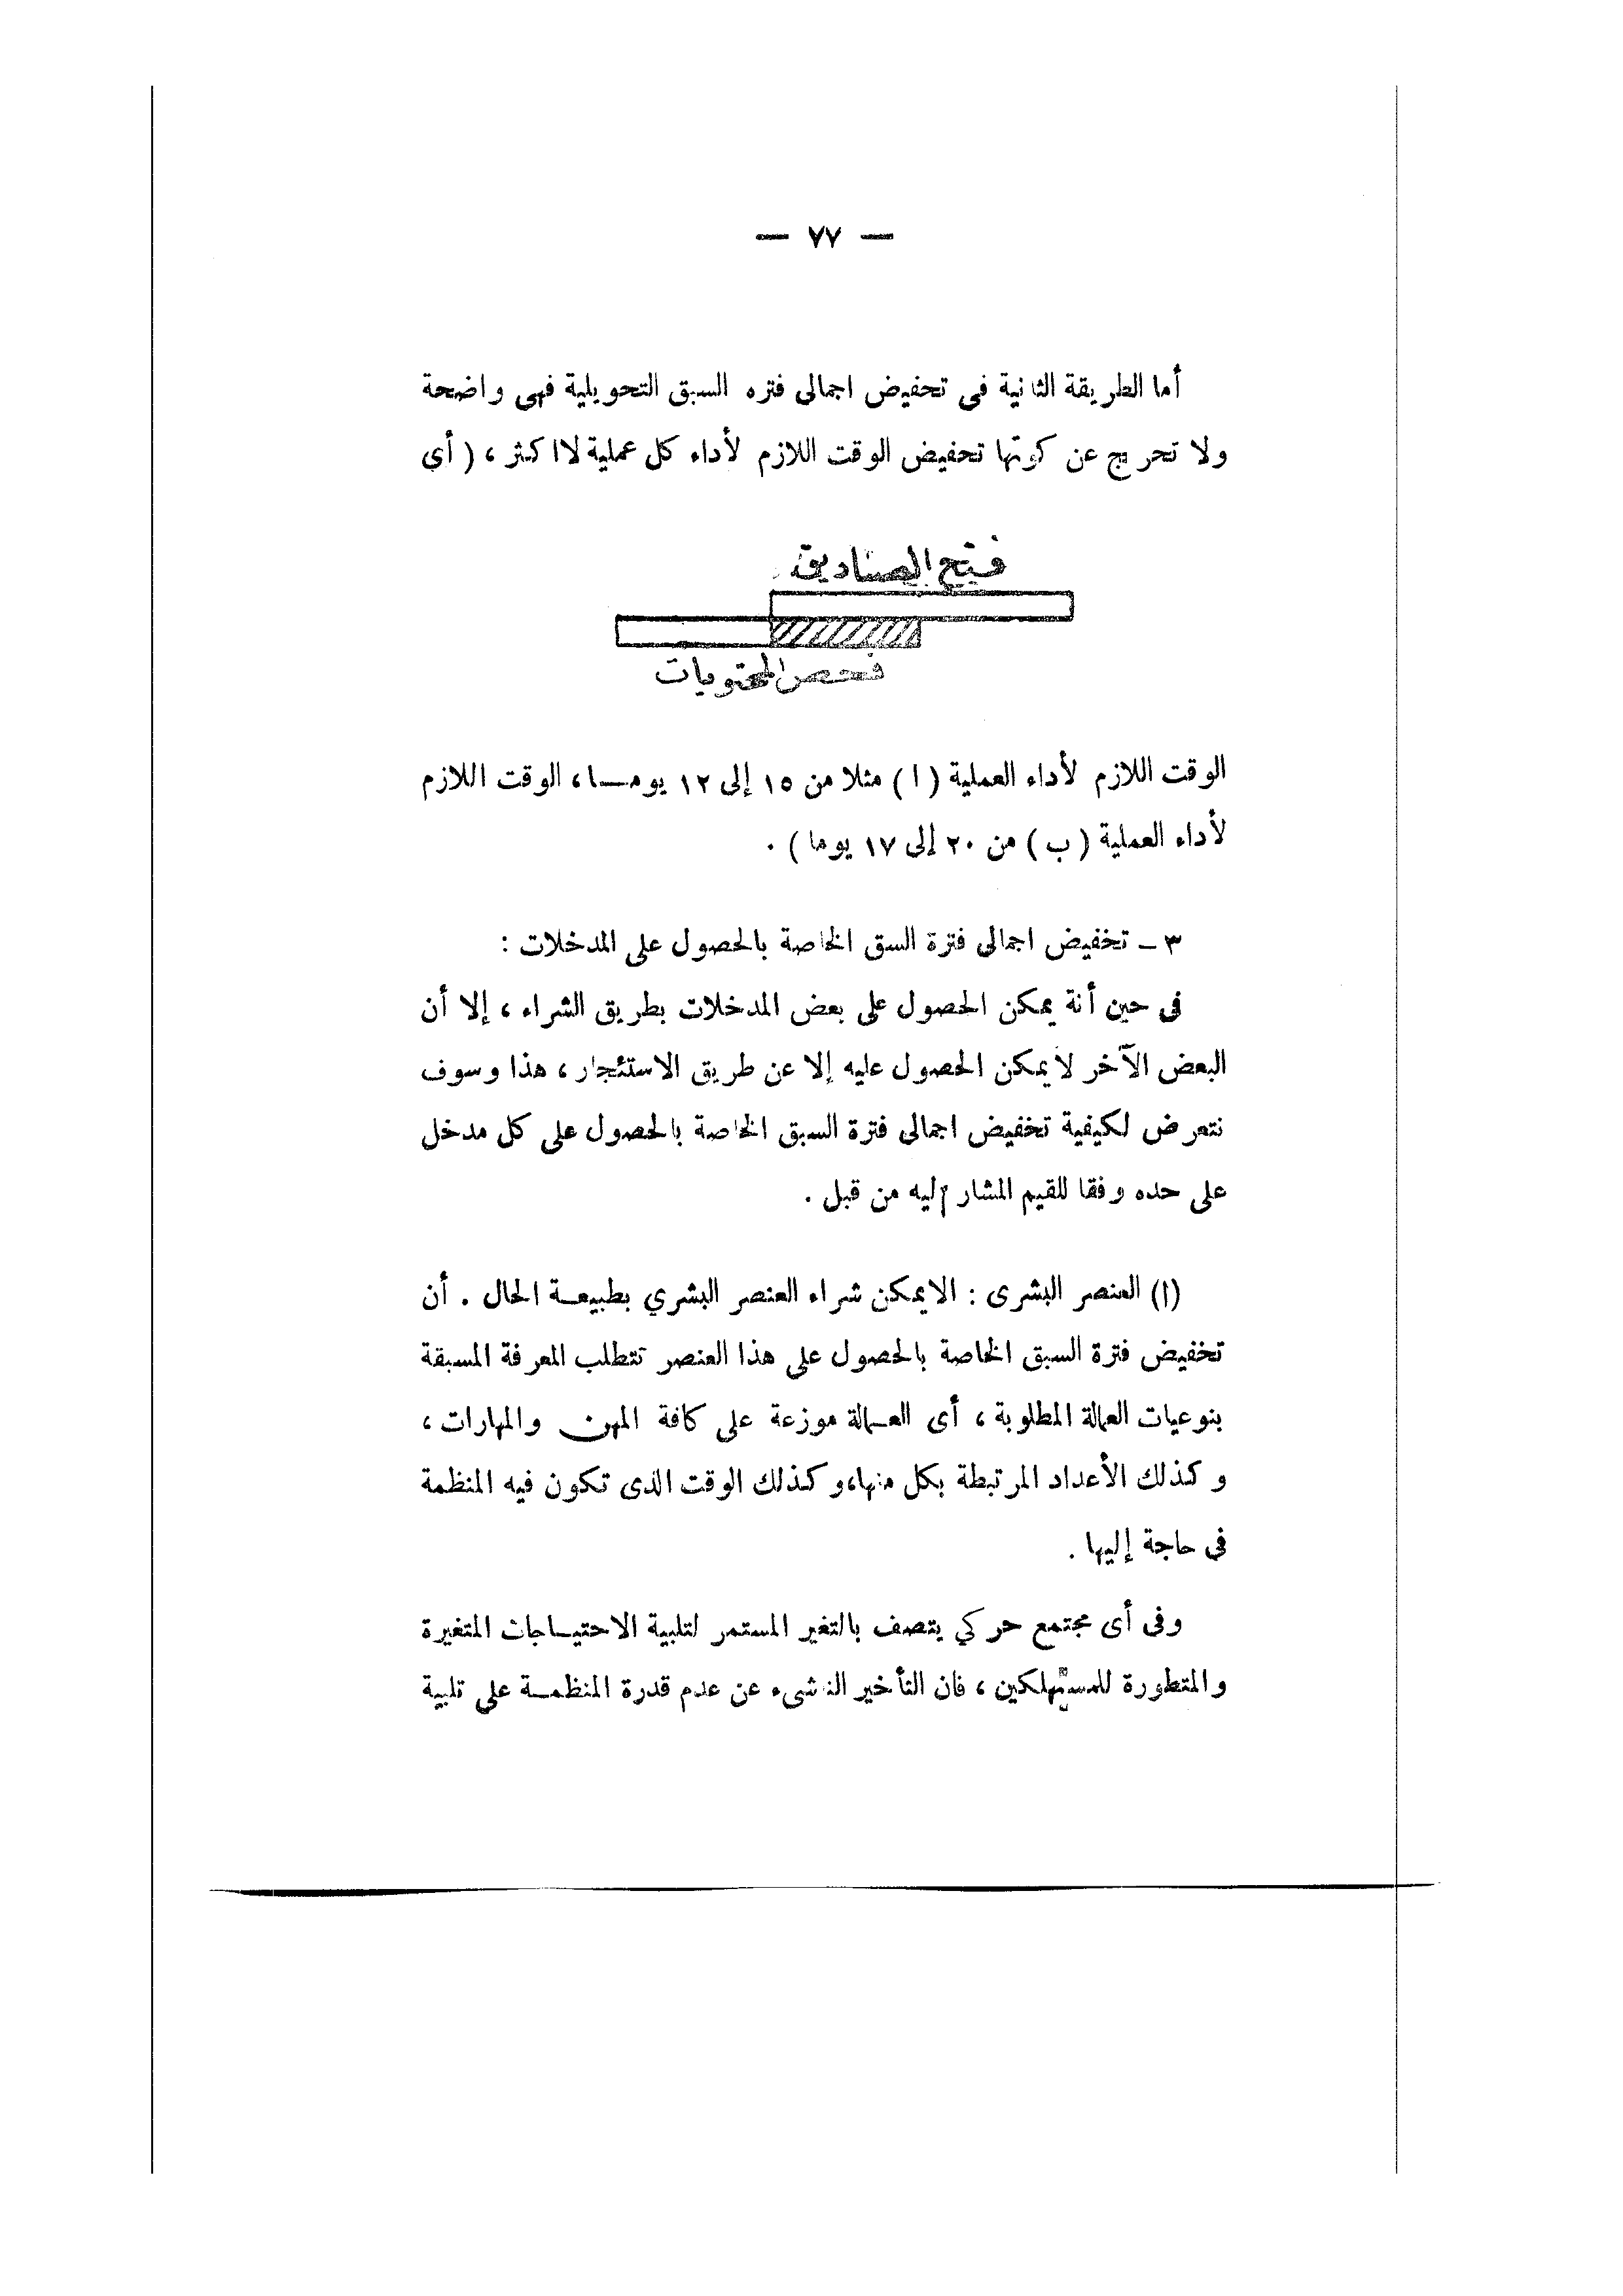 — ٧٧ —
أما الطريقة الثانية فى تحفيض اجمالى فتره السبق التحويلية فهى واضحة
ولا تحريج عن كونها تحفيض الوقت اللازم لأداء كل عملية لا اكثر ، ( أي
فتح الصناديق
فحص المحتويات
الوقت اللازم لأداء العملية ( ا ) مثلا من ١٥ إلى ١٢ يومــا ، الوقت اللازم
لأداء العملية ( ب ) من ٢٠ إلى ١٧ يوما ) .
٣ ـ تخفيض اجمالى فترة السق الخاصة بالحصول على المدخلات :
فى حين أنة يمكن الحصول على بعض المدخلات بطريق الشراء ، إلا أن
البعض الآخر لا يمكن الحصول عليه إلا عن طريق الاستئجار ، هذا وسوف
نتعرض لكيفية تخفيض اجمالى فترة السبق الخاصة بالحصول على كل مدخل
على حده وفقا للقيم المشار إليه من قبل .
(ا) العنصر البشرى : الايمكن شراء العنصر البشري بطبيعــة الحال . أن
تخفيض فترة السبق الخاصة بالحصول على هذا العنصر تتطلب المعرفة المسبقة
بنوعيات العمالة المطلوبة ، أى العــمالة موزعة على كافة المهن والمهارات ،
وكذلك الأعداد المرتبطة بكل منها ، وكذلك الوقت الذى تكون فيه المنظمة
فى حاجة إليها .
وفى أى مجتمع حركي يتصف بالتغير المستمر لتلبية الاحتيــاجات المتغيرة
والمتطورة للمستهلكين ، فان التأخير الناشىء عن عدم قدرة المنظمــة على تلبية